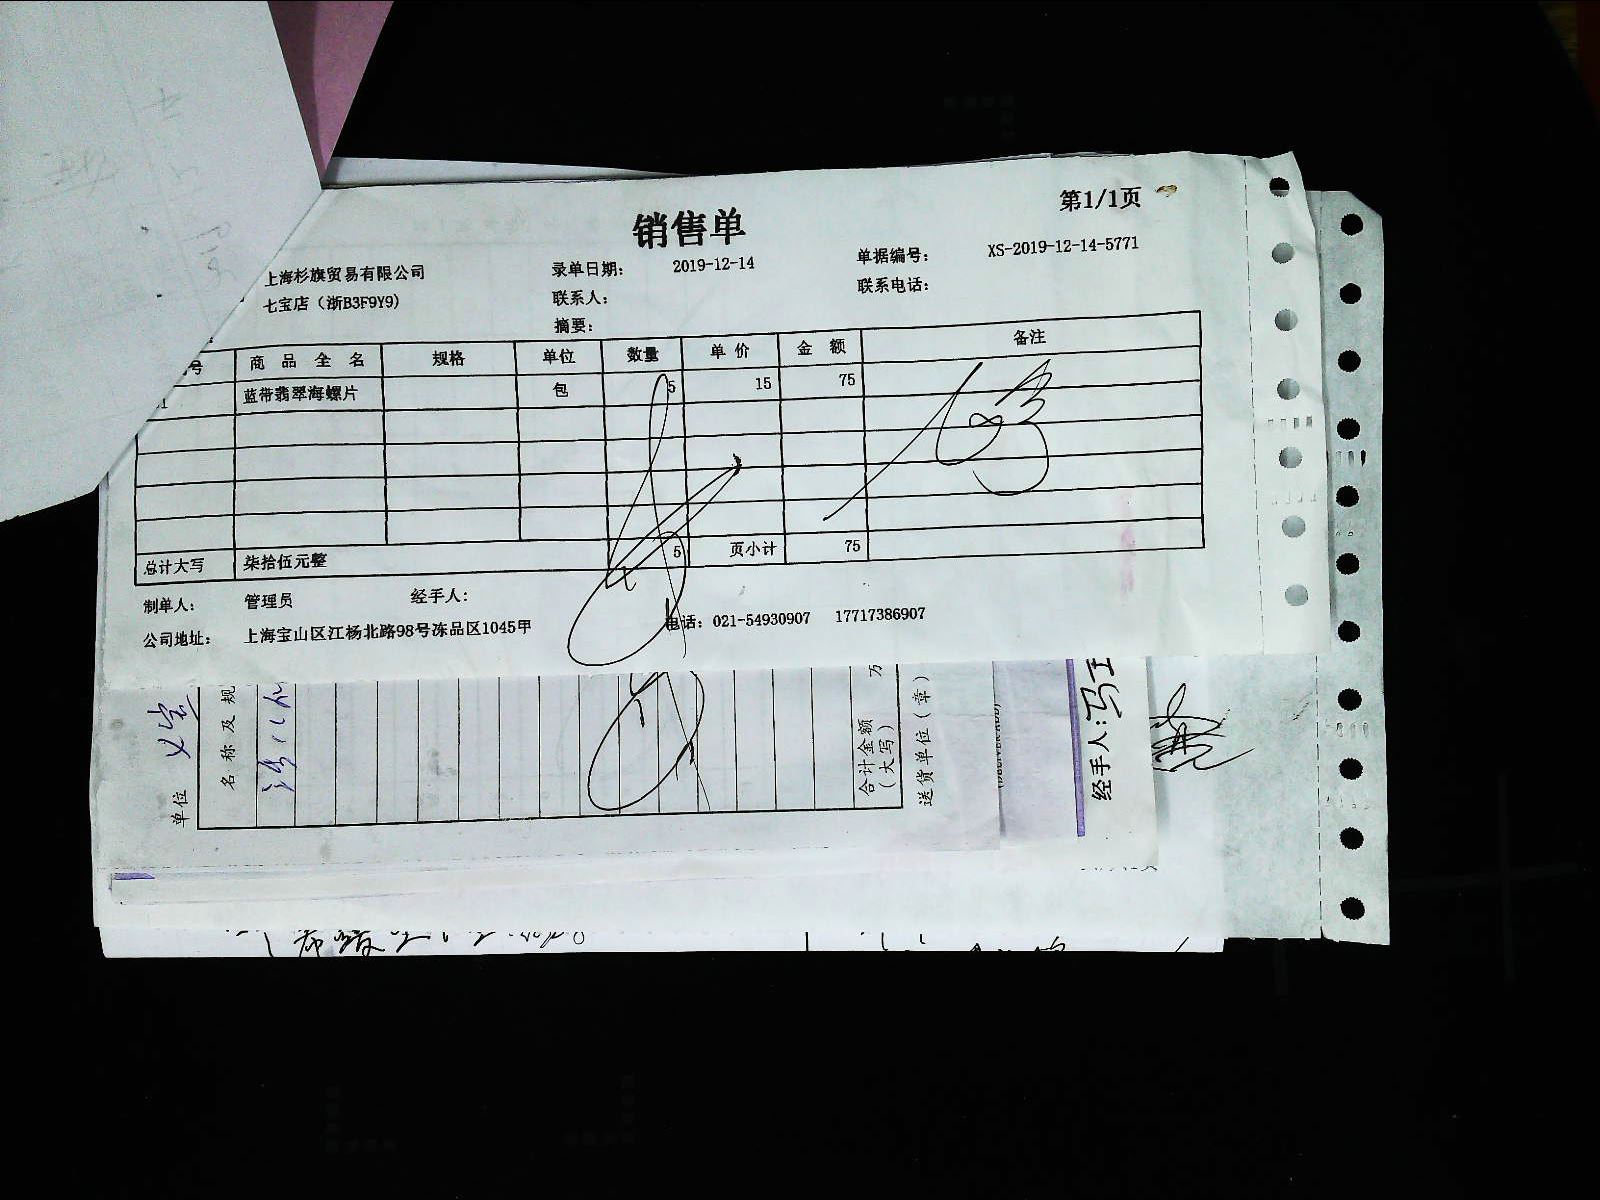 第1/1页
销售单
上海杉旗贸易有限公司 录单日期: 2019-12-14 单据编号: XS-2019-12-14-5771
七宝店（浙B3F9Y9） 联系人: 联系电话:
摘要:
号 商品全名 规格 单位 数量 单价 金额 备注
蓝带翡翠海螺片 包 5 15 75
总计大写 柒拾伍元整 5 页小计 75
制单人: 管理员 经手人:
公司地址: 上海宝山区江杨北路98号冻品区1045甲 电话: 021-54930907 17717386907
单位
名称及规
合计金额
(大写)
万
送货单位(章)
经手人: